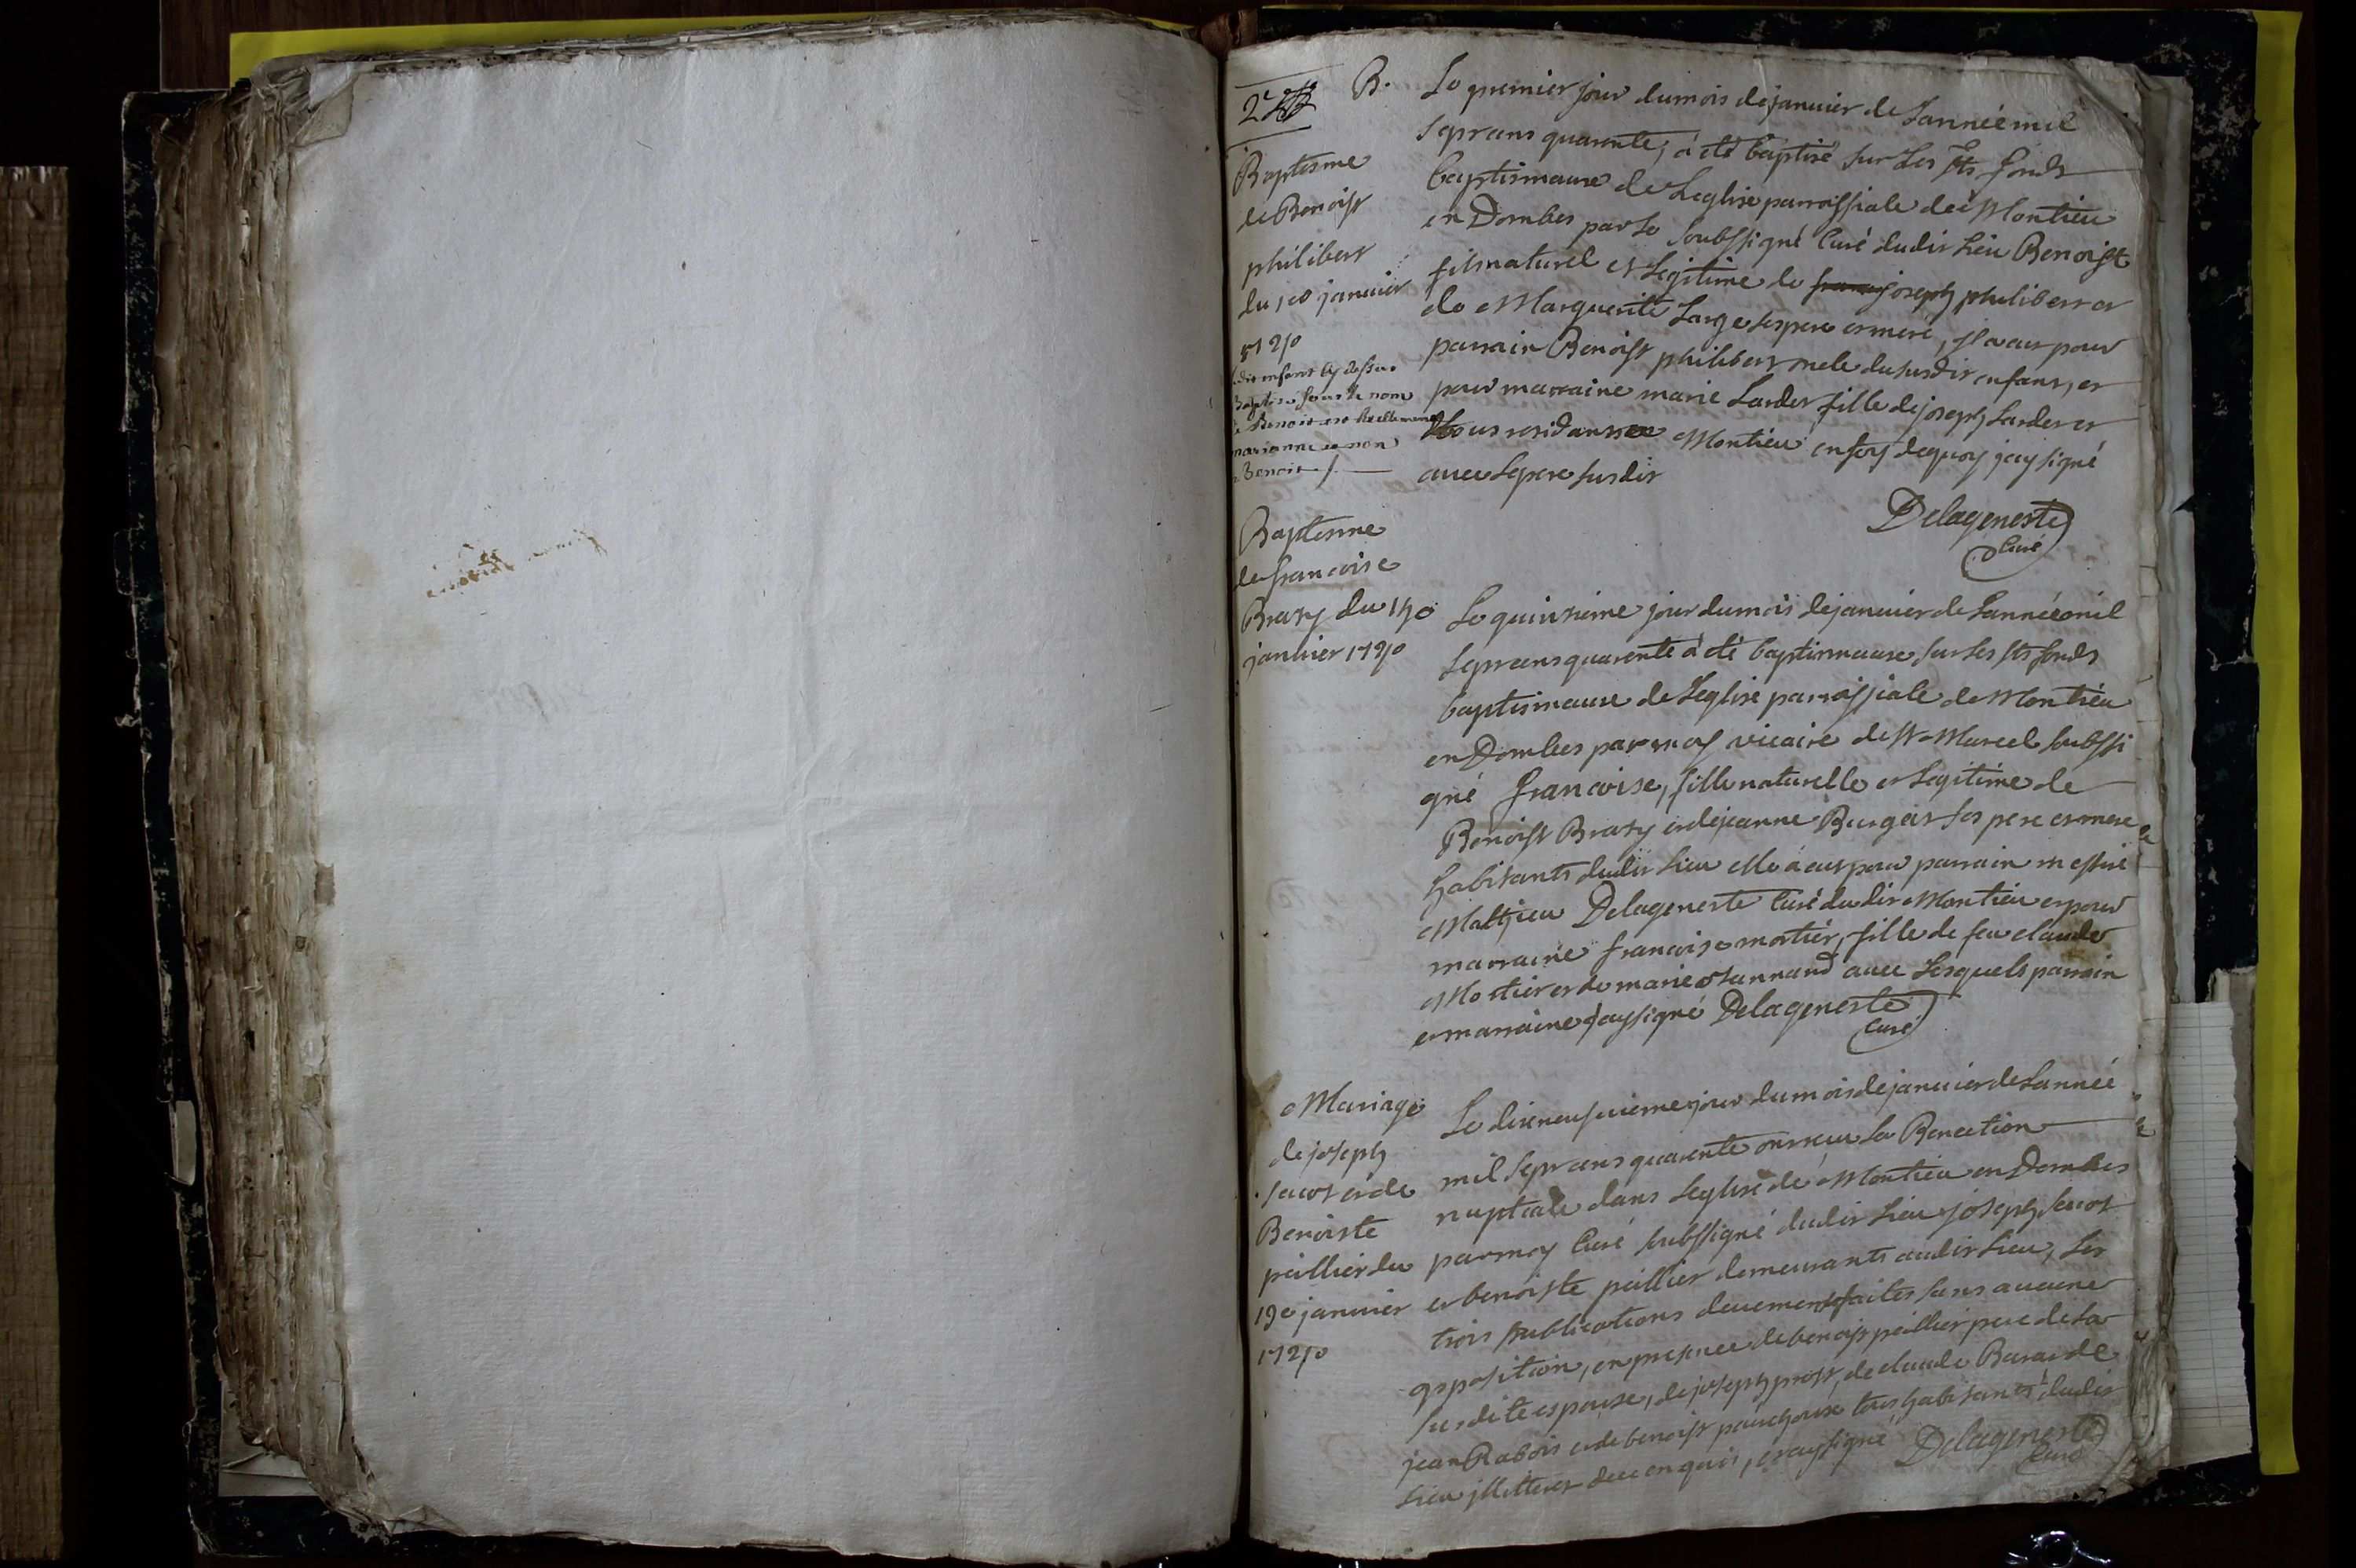 B.
Baptesme
de Benoist
philibert
du 1er janvier
1740
dit enfant cy dessus
baptisé sous le nom
de Benoit est reellement
marianne et non
Benoit
Le premier jour du mois de janvier de Lannée mil
sept cens quarente, a été baptisé sur Les sts fonds
baptismaux de Leglise parroissiale de Montieu
en Dombes par le soubssigné Curé dudit Lieu Benoist
fils naturel et Legitime de joseph philibert et
de Marguerite Large ses pere et mere, il a eut pour
parrain Benoist philibert oncle du susdit enfant, et
pour marraine marie Lardet fille de joseph Lardet et
tous residants Montieu en foy dequoy jay signé
avec Le pere susdit
Delageneste
Curé
Baptesme
de francoise
Brazy du 15e
janvier 1740
Le quinzieme jour du mois de janvier de Lannée mil
sept cens quarente a été baptismaux sur Les sts fonds
baptismaux de Leglise parroissiale de Montieu
en Dombes par moy vicaire de St Marcel soubssi
gné francoise, fille naturelle et Legitime de
Benoist Brazy et de jeanne Burgat ses pere et mere
habitants dudit Lieu elle a eut pour parrain messire
Matthieu Delageneste Curé dudit Montieu et pour
marraine francoise mortier, fille de feu claude
Mortier et de marie avec Lesquels parrain
et marraine jay signé Delageneste
Curé
Mariage
de joseph
jacot et de
Benoiste
peillier du
19e janvier
1740
Le dixneufvieme jour du mois de janvier de Lannée
mil sept cens quarente ont reçu La Benection
nuptiale dans Leglise de Montieu en Dombes
par moy Curé soubssigné dudit Lieu joseph jacot
et benoiste peillier demeurants audit Lieu, Les
trois publications deuement faites sans aucune
opposition, en presence de benoist peillier pere de La
susdite espouse, de joseph prost, de claude Bararde
jean Rabois et de benoist tous habitants dudit
Lieu illitterés de ce enquis, et ay signé Delageneste
Curé